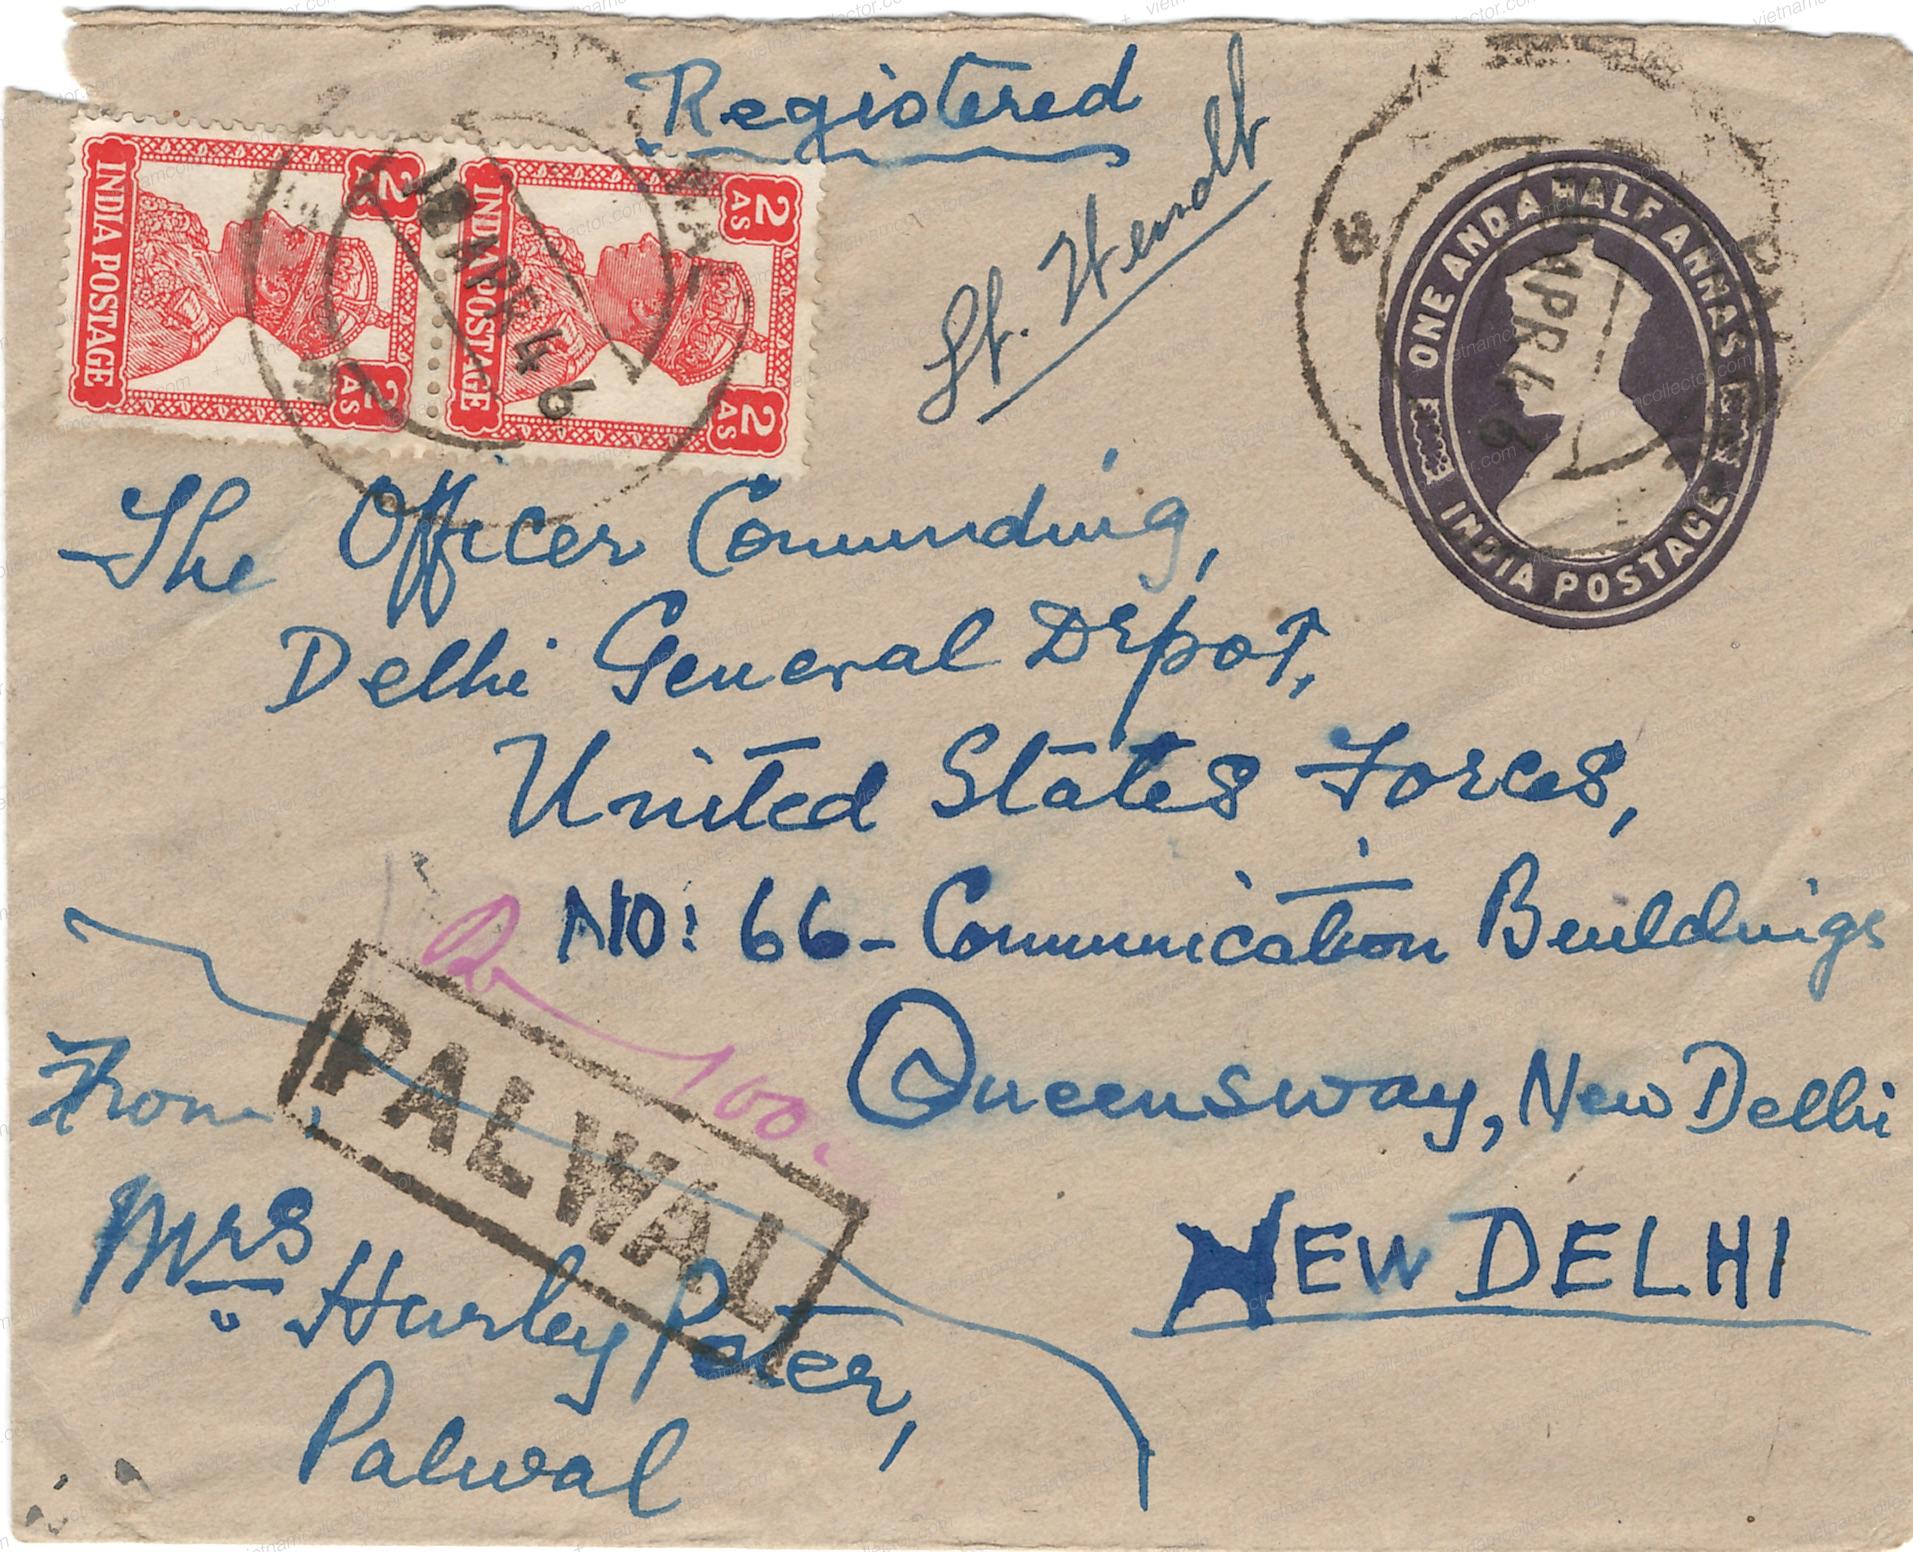 Registered
INDIA POSTAGE
2 AS
2 AS
INDIA POSTAGE
2 AS
2 AS
12 APR 46
ONE AND A HALF ANNAS
INDIA POSTAGE
APR 46
Lt.
The Officer Commanding,
Delhi General Depot,
United States Forces,
NO: 66- Communication Buildings
Queensway, New Delhi
NEW DELHI
100
PALWAL
From
Mrs Hurley Peter,
Palwal